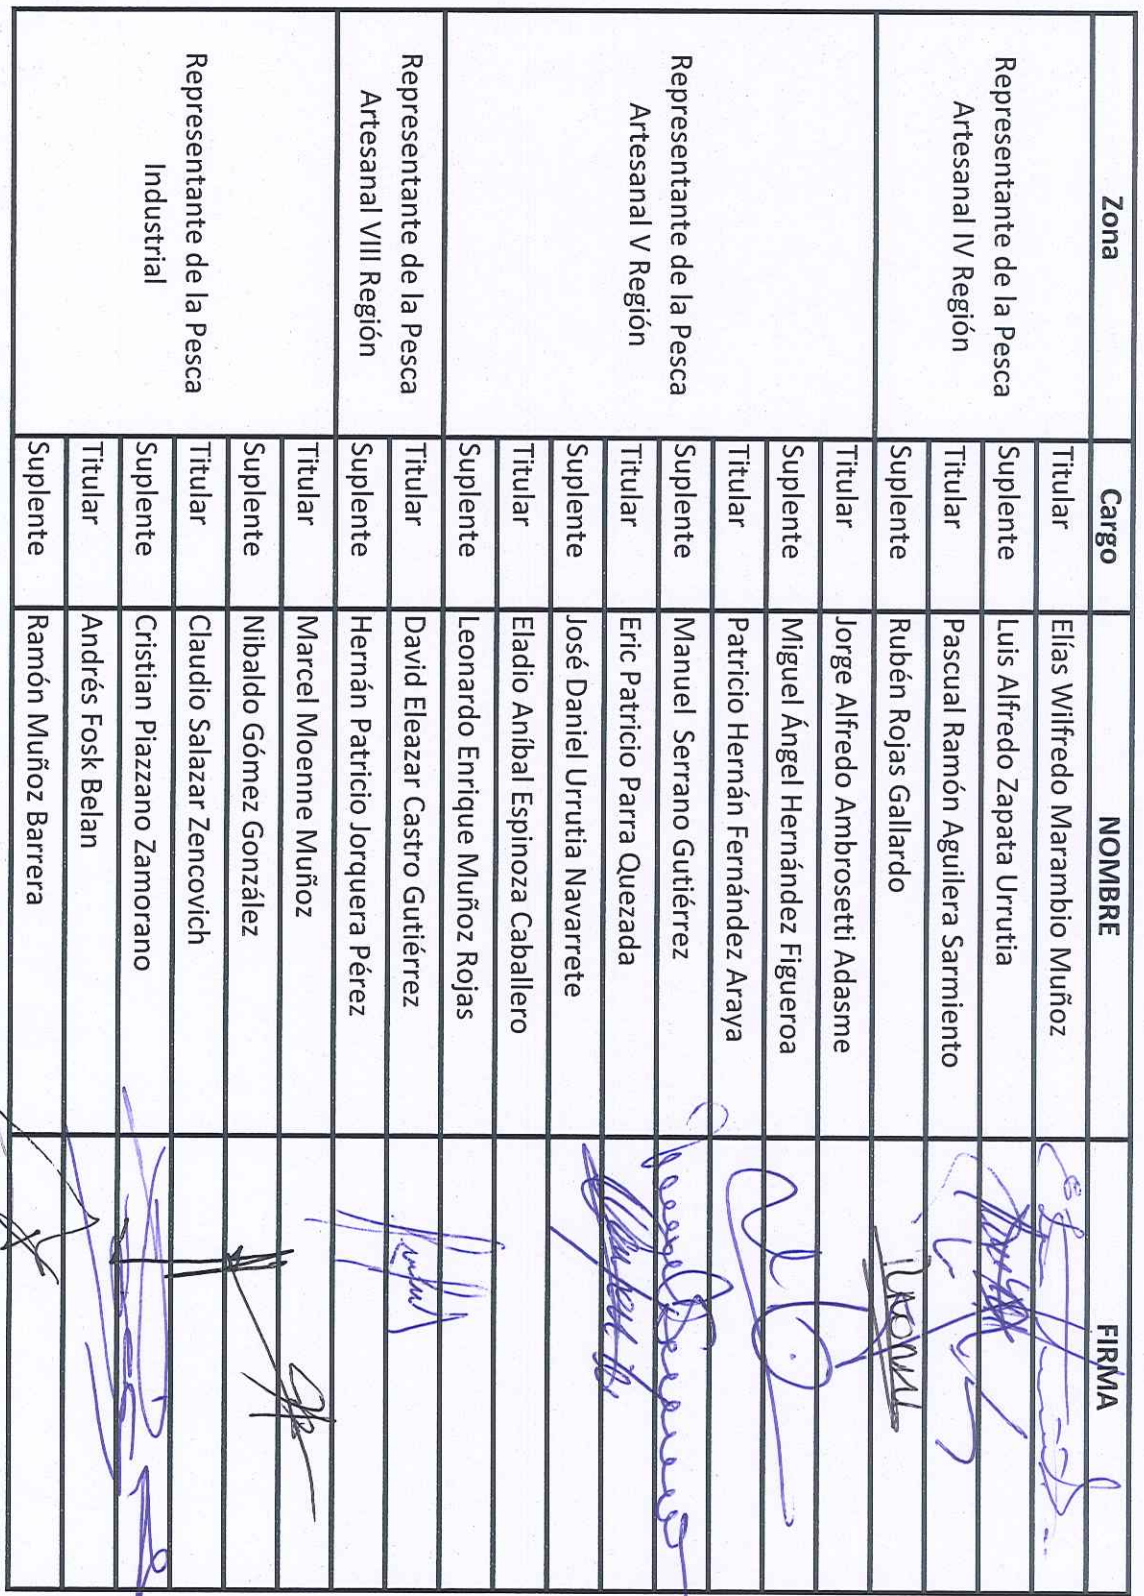 Zona Cargo NOMBRE FIRMA
Representante de la Pesca
Artesanal IV Región
Titular Elías Wilfredo Marambio Muñoz
Suplente Luis Alfredo Zapata Urrutia
Titular Pascual Ramón Aguilera Sarmiento
Suplente Rubén Rojas Gallardo
Representante de la Pesca
Artesanal V Región
Titular Jorge Alfredo Ambrosetti Adasme
Suplente Miguel Ángel Hernández Figueroa
Titular Patricio Hernán Fernández Araya
Suplente Manuel Serrano Gutiérrez
Titular Eric Patricio Parra Quezada
Suplente José Daniel Urrutia Navarrete
Titular Eladio Aníbal Espinoza Caballero
Suplente Leonardo Enrique Muñoz Rojas
Representante de la Pesca
Artesanal VIII Región
Titular David Eleazar Castro Gutiérrez
Suplente Hernán Patricio Jorquera Pérez
Representante de la Pesca
Industrial
Titular Marcel Moenne Muñoz
Suplente Nibaldo Gómez González
Titular Claudio Salazar Zencovich
Suplente Cristian Piazzano Zamorano
Titular Andrés Fosk Belan
Suplente Ramón Muñoz Barrera